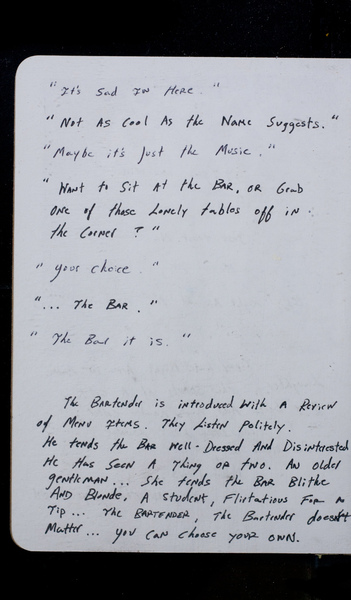 "It's sad in Here."
"Not As Cool As the Name Suggests."
"Maybe it's Just the Music."
"Want to Sit At the Bar, or Grab
one of those Lonely tables off in
the Corner?"
"your choice."
"... The Bar."
"The Bar it is."
The Bartender is introduced with A Review
of Menu Items. They Listen Politely.
He tends the Bar well-Dressed And Disinterested
He Has Seen A Thing or two. An older
gentleman... She tends the Bar Blithe
And Blonde. A student, Flirtatious For a
Tip... The Bartender, The Bartender doesn't
Matter... you can choose your own.